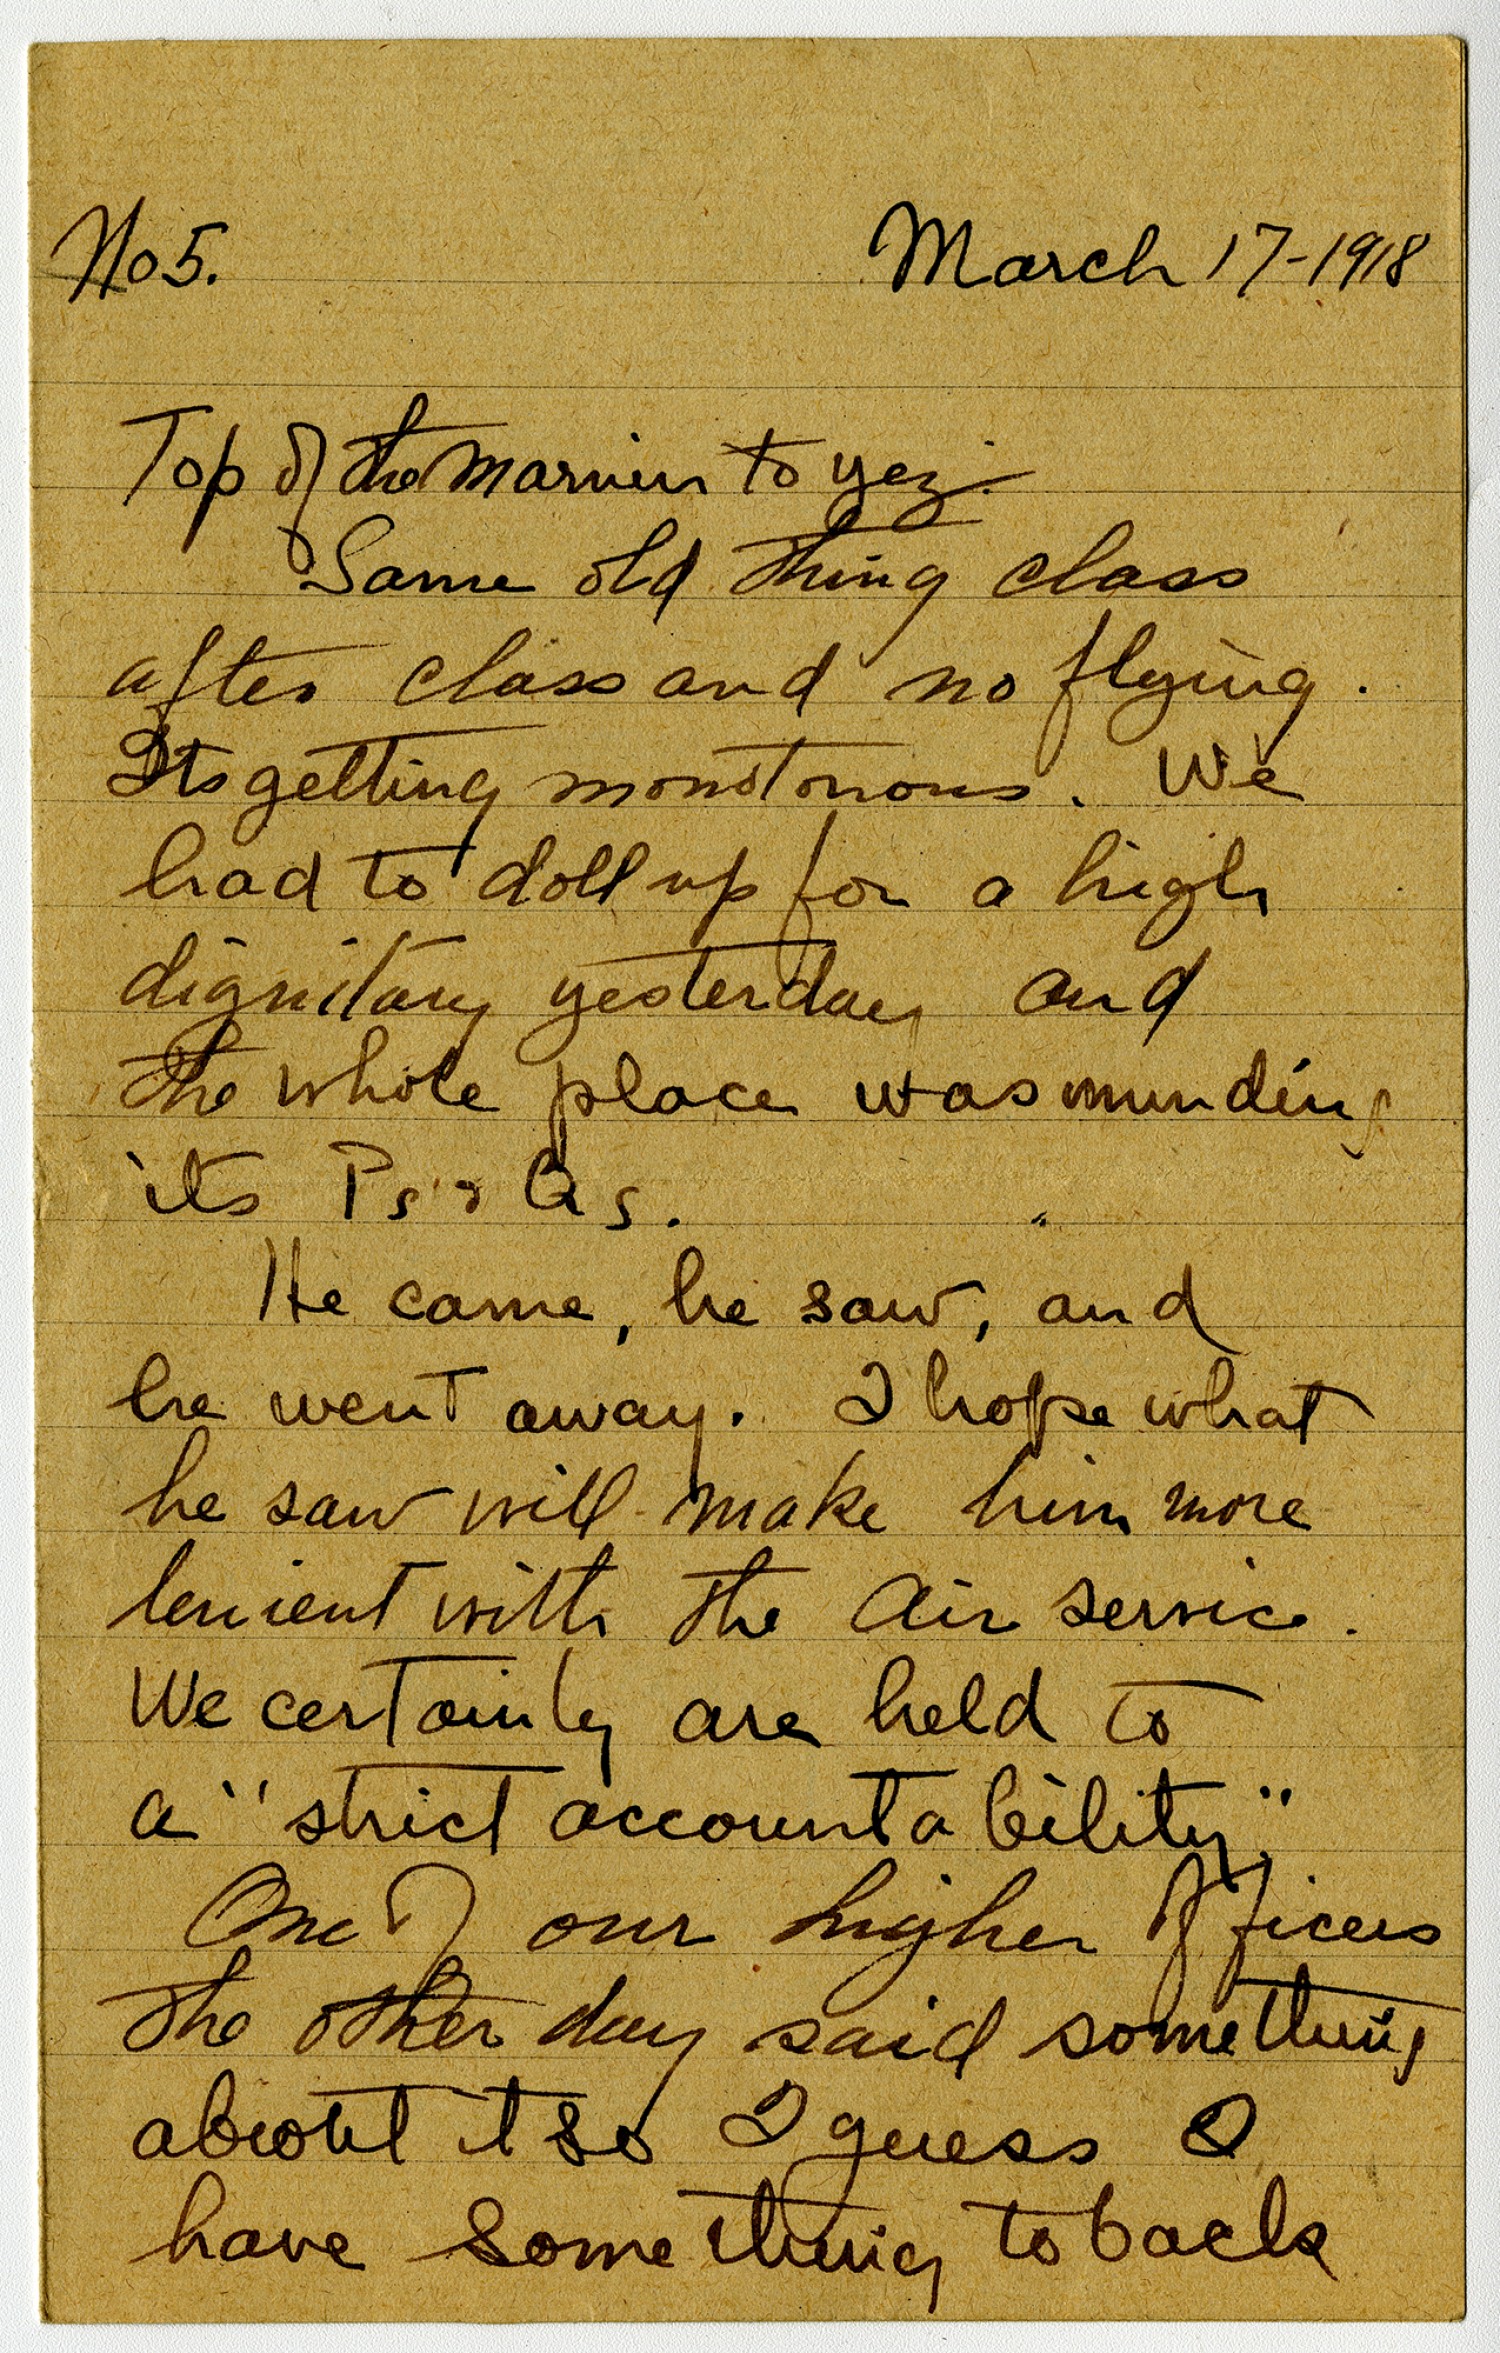 No 5. March 17-1918
Top of the Marnin to yez.
Same old thing class
after class and no flying.
Its getting monotonous. We
had to doll up for a high
dignitary yesterday and
the whole place was minding
its Ps & Qs.
He came, he saw, and
he went away. I hope what
he saw will make him more
lenient with the Air Service.
We certainly are held to
a "strict accountability."
One of our higher officers
the other day said something
about it so I guess I
have something to back